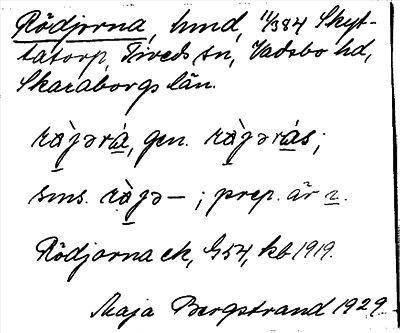 Rödjorna, hmd, 11/384 Skyt-
tatorp, Tiveds sn, Vadsbo hd,
Skaraborgs län.
rägərà, gen. rägəràs;
sms. rägə- ; prep. är i.
Rödjorna ek, G54, kb 1919.
Maja Bergstrand 1929.